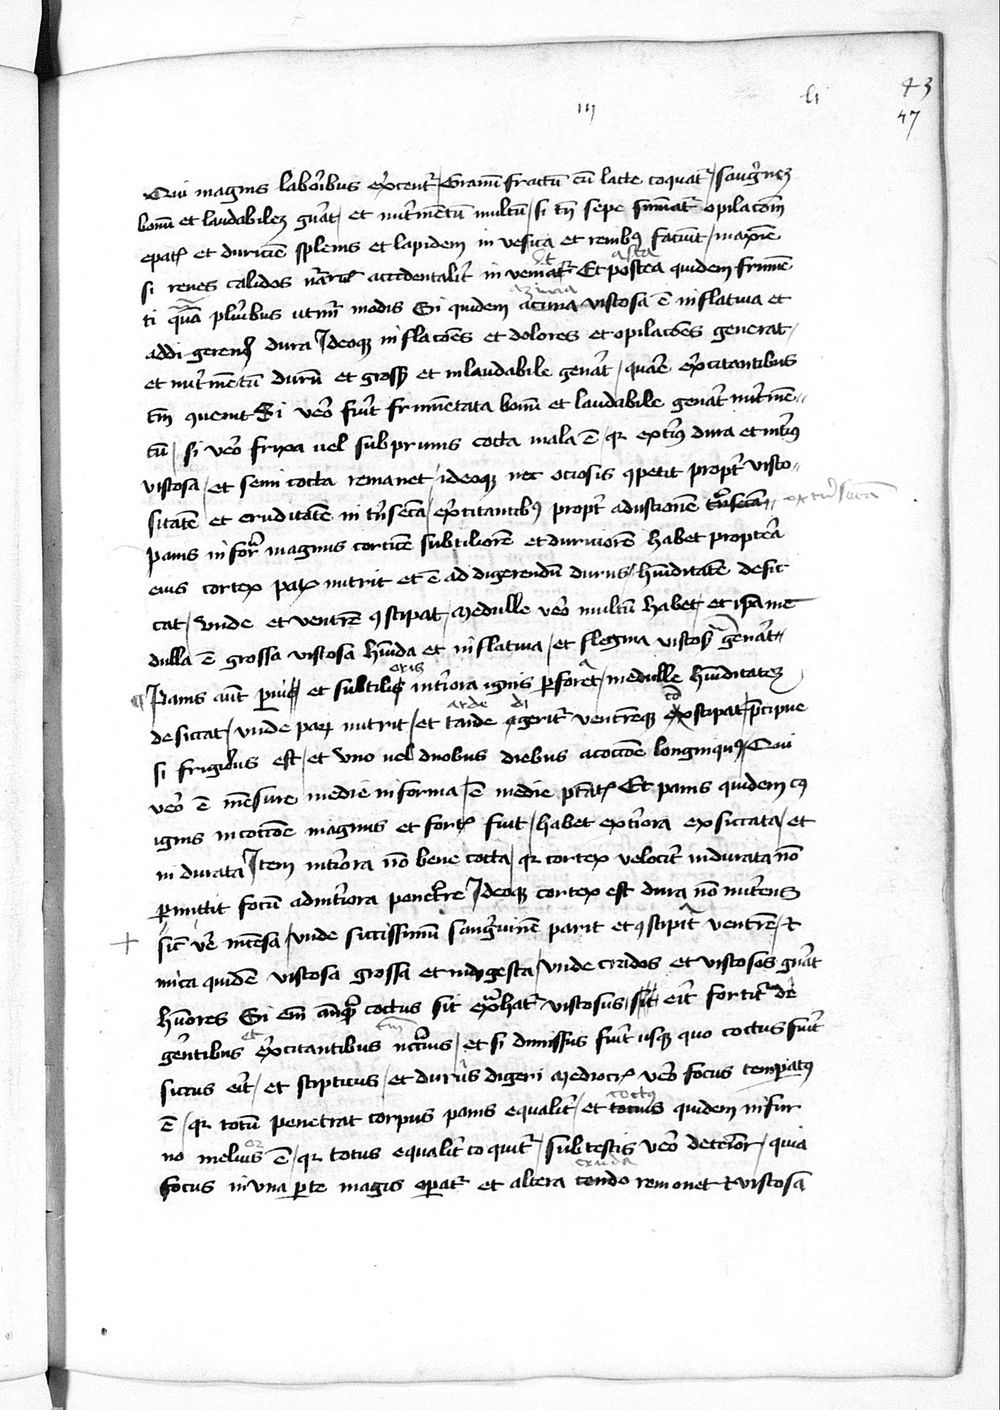 li 43
iij 47
Qui magnis laboribus exercentr̄ Granū fractū cū latte coquatr̄ / sanguinez
bonū et laudabilez gn̄at / et nutrimentū multū / si tn̄ sepe sumatr̄ opilacōm
epatis et duriciē splenis et lapidem in vesica et renibꝰ faciūt / maxīe
si renes calidos accidentalit̄ in Et postea quidem frumē
ti pluribus utimr̄ modis Si quidem acima viscosa ē inflatiua et
addigerend dura Ideoqꝫ inflacōes et dolores et opilacōes generat
et nutrimentū durū et grossū et inlaudabile gen̄at / quare exercitantibus
tm̄ querit Si vero fiūt frumētata bonū et laudabile gen̄at nutrimē
tū / si vero frixa uel sub prunis cocta mala ē / qr exteriꝰ dura et interiꝰ
viscosa / et semi cocta remanet / ideoqꝫ nec ociosis competit propt̄ visco
sitatē et cruditatē intrīsecā / exercitantibꝰ propt̄ adustionē extrīsecā
panis infor̄ magnus corticē subtiliorē et duriciorē habet proptea
eius cortex pax nutrit et ē ad digerendū durus / hūiditatē desic
cat / unde et ventrē constipat / Medulle vero multū habet / et ipa me
dulla ē grossa viscosa hūida et inflatiua / et flegma viscosū gen̄at
Panis aūt et subtilis interiora ignis perforet / medulle hūiditatez
desiccat / unde parū nutrit / et tarde digeritr̄ ventremqꝫ constipat / precipue
si frigidus est / et uno uel duobus diebus acoctōe longinquꝰ Qui
vero ē mēsure medie in forma / ē medie Et panis quidem cꝰ
ignis in coctōe magnus et fortis fuit / habet exteriora exsiccata / et
indurata Item interiora nō bene cocta / qr cortex velocit̄ indurata nō
permittit focū ad interiora penetrare Ideoqꝫ cortex est dura nō nutrens
sic̄ incensa / unde siccissimū sanguinē parit et constipat ventrē / et
mica quidē viscosa grossa et indigesta / unde crudos et viscosos gn̄at
hūores Si em̄ coctus sit viscosus sit erit fortit̄ de
gerentibus et exercitantibus / et si dimissus fuit usqꝫ quo coctus fuit
siccus erit / et stipticus / et durus digeri Mediocris vero focus temperatꝰ
ē / qr totū penetrat corpus panis equalit̄ / et coctus quidem in fur
no melior ē / qr totus equalit̄ coquitr̄ / sub testis vero deterior / quia
focus in una parte magis operatr̄ et altera cruda remanet et viscosa